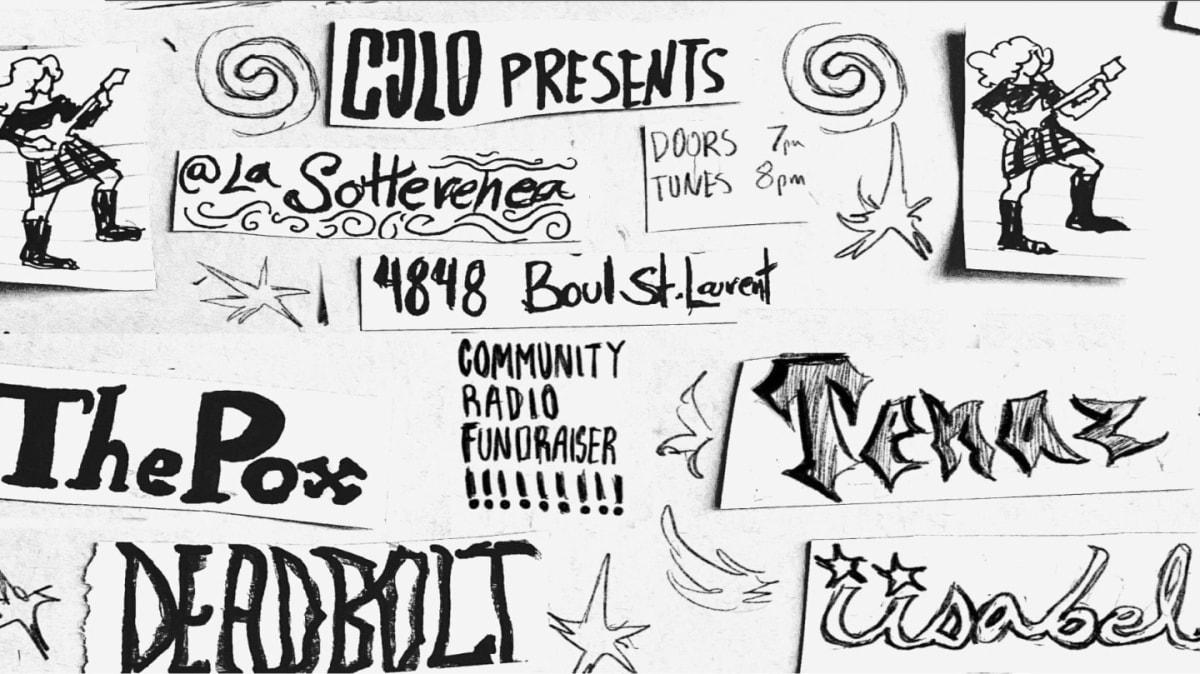 CJLO PRESENTS
@La Sotterenea
DOORS 7pm
TUNES 8pm
4848 Boul St. Laurent
COMMUNITY
RADIO
FUNDRAISER
!!!!!!!!!
The Pox
Tenaz
DEADBOLT
iisabel